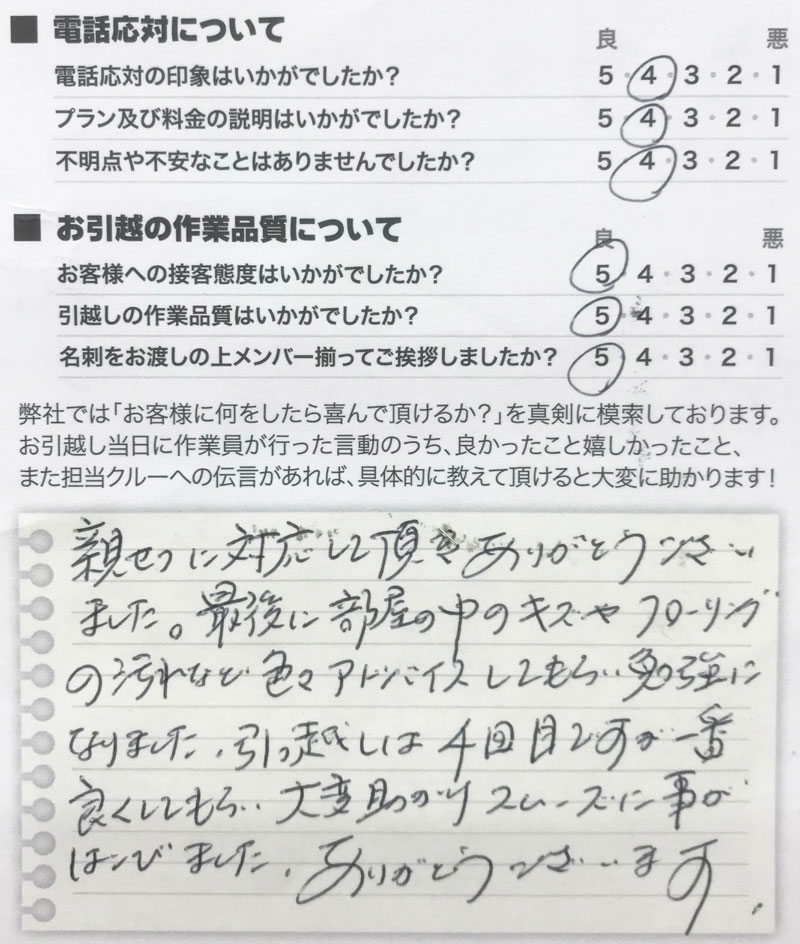 ■ 電話応対について
良 悪
電話応対の印象はいかがでしたか? 5・4・3・2・1
プラン及び料金の説明はいかがでしたか? 5・4・3・2・1
不明点や不安なことはありませんでしたか? 5・4・3・2・1
■ お引越の作業品質について
良 悪
お客様への接客態度はいかがでしたか? 5・4・3・2・1
引越しの作業品質はいかがでしたか? 5・4・3・2・1
名刺をお渡しの上メンバー揃ってご挨拶しましたか? 5・4・3・2・1
弊社では「お客様に何をしたら喜んで頂けるか?」を真剣に模索しております。
お引越し当日に作業員が行った言動のうち、良かったこと嬉しかったこと、
また担当クルーへの伝言があれば、具体的に教えて頂けると大変に助かります!
親切に対応して頂きありがとうござい
ました。最後に部屋の中のキズやフローリング
の汚れなど色々アドバイスしてもらい勉強に
なりました。引っ越しは4回目ですが一番
良くしてもらい大変助かりスムーズに事が
はこびました。ありがとうございます。